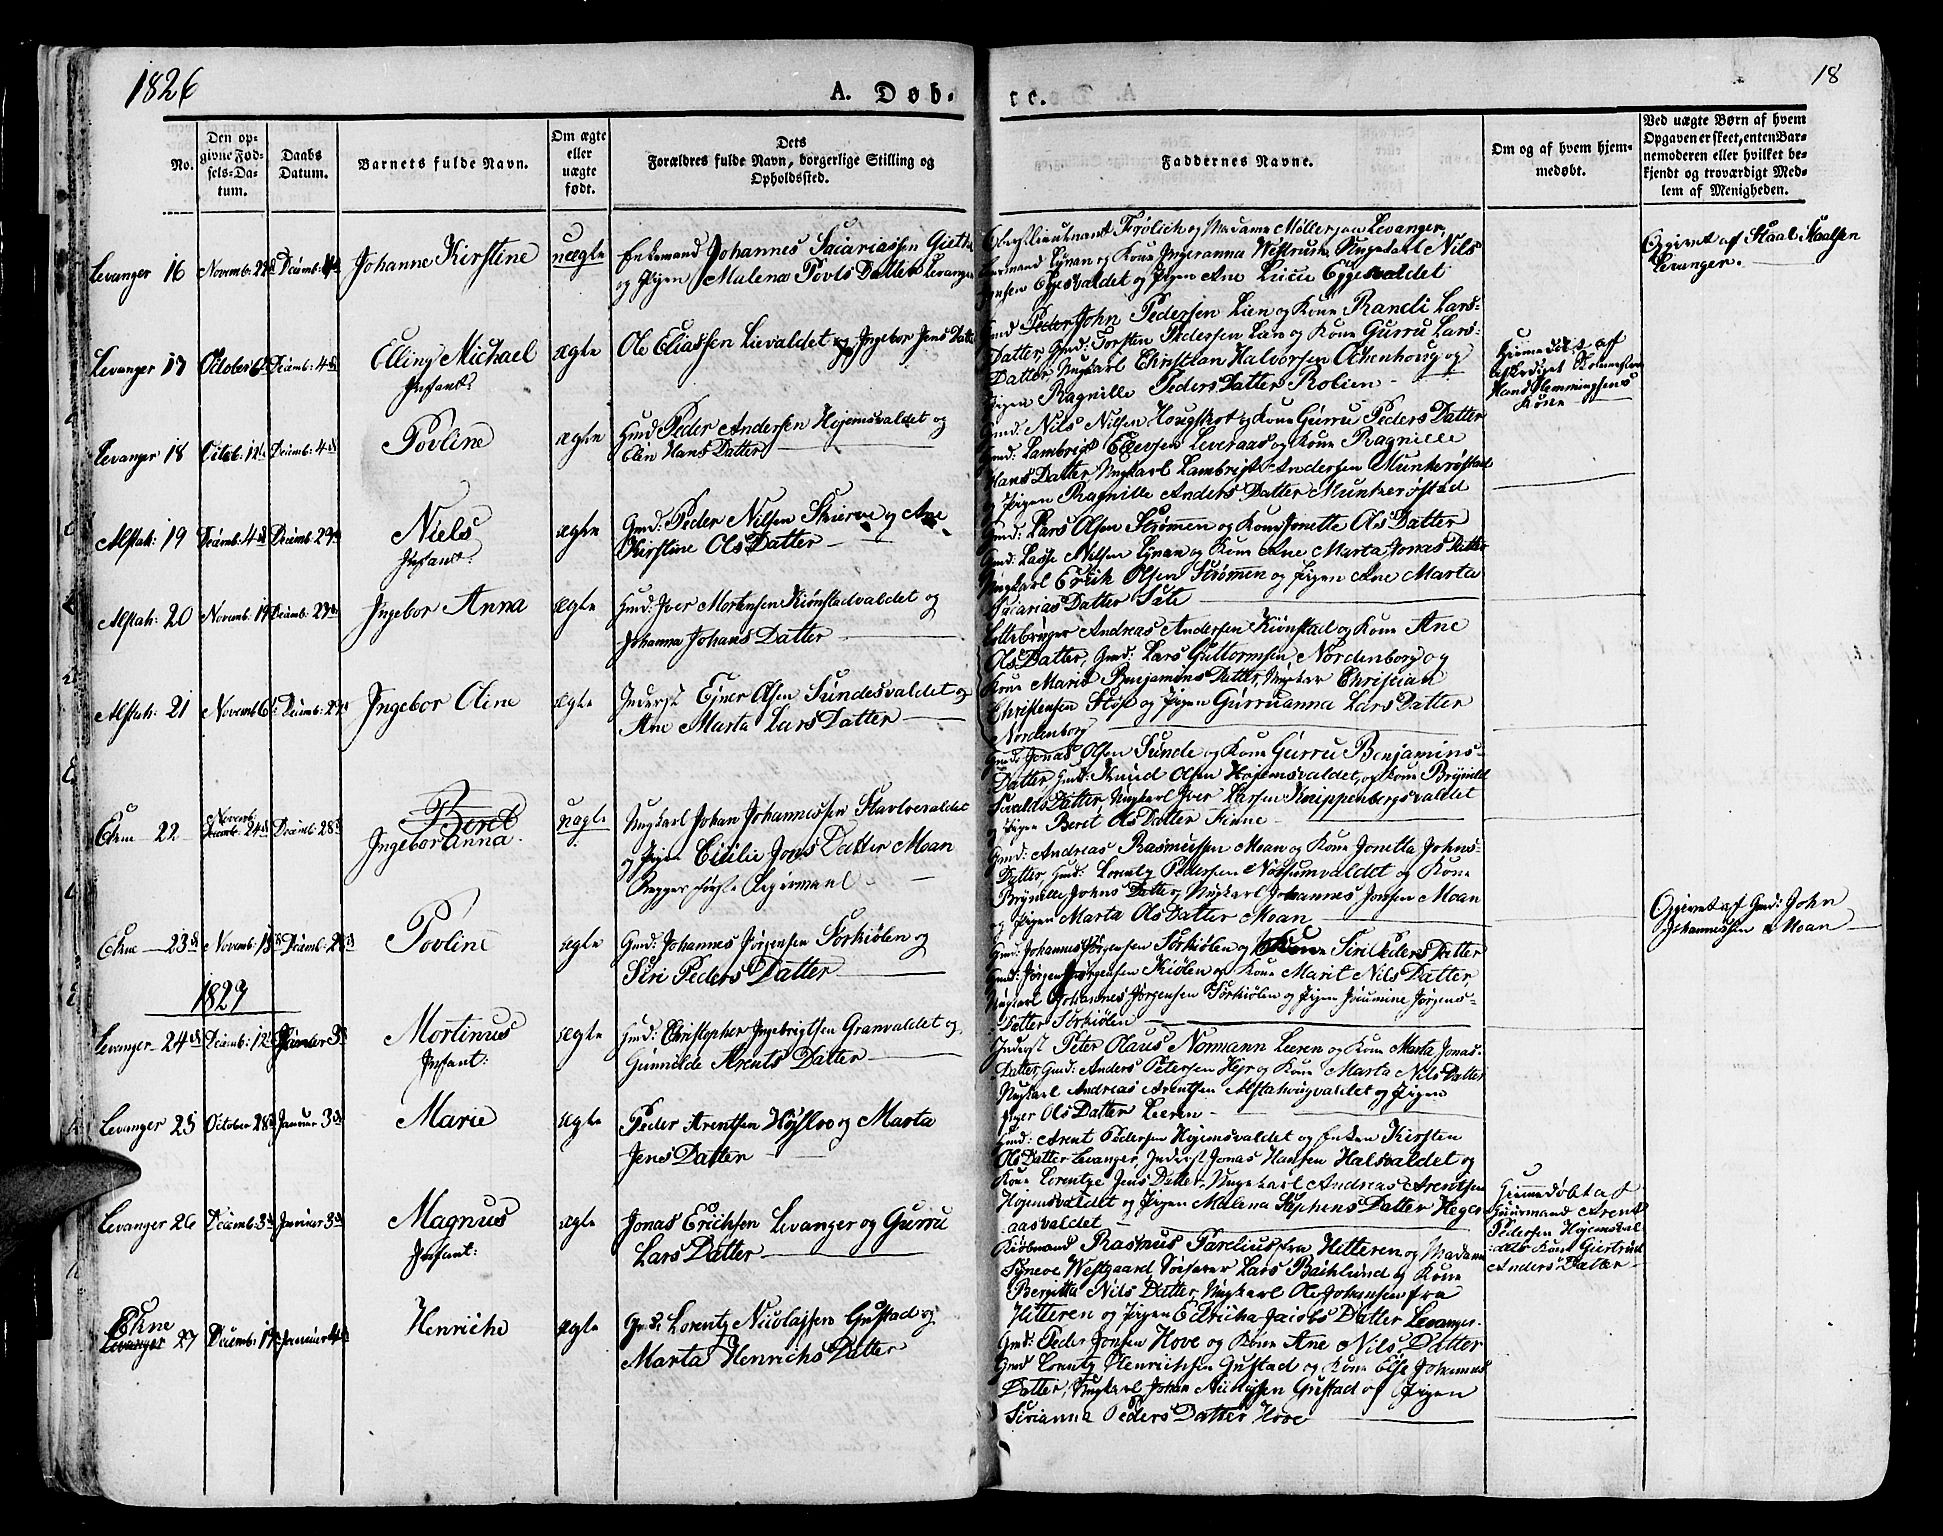 1826
A. Døb-
te.
18
No.
Den op-
givne Fød-
sels-Da-
tum.
Daabs
Datum.
Barnets fulde Navn.
Om ægte
eller
uægte
født.
Dets
Forældres fulde Navn, borgerlige Stilling og
Opholdssted.
Faddernes Navne.
Om og af hvem hjem-
medøbt.
Ved uægte Børn af hvem
Opgaven er skeet, enten Bar-
nemoderen eller hvilket be-
kjendt og troværdigt Med-
lem af Menigheden.
Levanger 16
Johanne Kirstine
uægte
Enkemand Johannes Sacariassen
og Pigen Malena Povls Datter Levanger
Oberstlieutnant Frølich og Madame Møller paa Levanger,
og Kone Ingeranna Westrum Ungkarl Nils
Jensen Eggesvaldet og Pigen Ane Lucie Eggesvaldet
Opgivet af Staal Staalsen
Levanger.
Levanger 17 October 6 Decemb: 4d
Elling Michael
Infant:
ægte
Ole Eliassen Lievaldet og Ingebor Jens Datter
Gmd John Pedersen Lien og Kone Randi Lars-
Datter, Gmd: Torsten Pedersen Lien og Kone Gurru Lars-
Datter, Ungkarl Christian Halvorsen Okkenhoug og
Pigen Ragnille Peders Datter Rolien
Hiemmedøbt af
Hans Flemmingsens
Kone
Levanger 18 Octob: 12 Decemb: 4d
Povline
ægte
Gmd Peder Andersen Hojemsvaldet og
Elen Hans Datter
Gmd: Nils Nilsen Hougskot og Kone Gurru Peders Datter
Gmd: Lambrigt Ellefsen Leveraas og Kone Ragnille
Hans Datter Ungkarl Lambrigt Andersen Munkerøstad
og Pigen Ragnille Anders Datter Munkerøstad
Alstah: 19 Decemb: 4d Decemb: 29d
Niels
Infant:
ægte
Gmd: Peder Nilsen Skierve og Ane
Kirstine Ols Datter
Gmd: Lars Olsen Strømmen og Kone Jonette Ols Datter
Gmd: Lasse Nilsen Lynan og Kone Ane Marta Jonas Datter
Ungkarl Erik Olsen Strømmen og Pigen Ane Marta
Sacarias Datter Sæte
Alstah: 20
Ingebor Anna
ægte
Gmd: Iver Mortensen Kiønstadvaldet og
Johanna Johans Datter
Andreas Andersen Kiønstad og Kone Ane
Ols Datter, Gmd: Lars Guttormsen, Nordenborg og
Kone Marit Benjamins Datter, Ungkar Christian
Christensen Støp og Pigen Gurruanna Lars Datter
Nordenborg
Alstah: 21 Novemb 6
Ingebor Oline
ægte
Inderst Ejner Olsen Sundesvaldet og
Ane Marta Lars Datter
Gmd: Jonas Olsen Sunde og Kone Gurru Benjamins-
Datter, Gmd: Knud Olsen Hojemsvaldet, og Kone Brynild
Datter, Ungkarl Iver Larsen Knippenbergsvaldet
og Pigen Beret Ols Datter Finne
Ekne 22 Novemb: 24d Decemb: 28d
Beret
Ingebor Anna
uægte
Ungkarl Johan Johannessen Stavlovaldet
og Pigen Cicilie Jons Datter Moan
Begges første Legermaal
Gmd: Andreas Rasmussen Moan og Kone Jonetta Johns-
Datter, Gmd: Lorentz Pedersen Nossumvaldet og Kone
Brynille Johns Datter og Ungkarl Johannes Jonsen Moan
og Pigen Marta Ols Datter Moan
Opgivet af Gmd: John
Johannessen Moan
Ekne 23d Novemb: 18
Povline
ægte
Gmd: Johannes Jørgensen Sorkiølen og
Siri Peders Datter
Gmd: Johannes Jørgensen Sorkiølen og Kone Siri Peders Datter
Gmd: Jørgen Jørgensen Kiølen og Kone Marit Nils Datter,
Ungkarl Johannes Jørgensen Sorkiølen og Pigen Jørgens-
Datter Sorkiølen
1827
Levanger 24d Decemb: 12 Januar 3d
Mortinus
Infant:
ægte
Gmd: Christopher Ingebrigtsen Granvaldet og
Gunnilde Arents Datter
Inderst Peter Olaus Normann Leeren og Kone Marta Jonas-
Datter, Gmd: Anders Petersen Hejr og Kone Marta Nils Datter
Ungkarl Andreas Arentsen Alstahougvaldet og Pigen
Ols Datter Leeren
Levanger 25 October 28d Januar 3d
Marie
ægte
Peder Arentsen og Marta
Jens Datter
Gmd: Arent Pedersen Hojemsvaldet og Enken Kirsten
Ols Datter Levanger, Inderst Jonas Hansen Halsvaldet og
Kone Lorentze Jens Datter, Ungkarl Andreas Arentsen
Hojemsvaldet og Pigen Malena Stephens Datter Heger-
aasvaldet
Levanger 26 Decemb: 3d Januar 3d
Magnus
Infant:
ægte
Jonas Erichsen Levanger og Gurru
Lars Datter
Kiøbmand Rasmus Parelius fra Hitteren og Madame
Synove Westgaard Lars Backlund og Kone
Bergitta Nils Datter, Ungkarl Ole Johansen fra
Hitteren og Pigen Edricka Jacobs Datter Levanger
Hiemmedøbt af
Arent
Pedersen Hojemsval-
dets Kone Giertrud
Anders Datter
Ekne
Levanger 27 Decemb: 17 Januar
Henriche
ægte
Gmd: Lorentz Nicolajsen Gustad og
Marta Henrichs Datter
Gmd: Peder Jonsen Hove og Kone Ane Nils Datter
Gmd Lorentz Henrichsen Gustad og Kone Else Johannes
Datter, Ungkarl Johan Nicolajsen Gustad og Pigen
Sirianna Peders Datter Hove